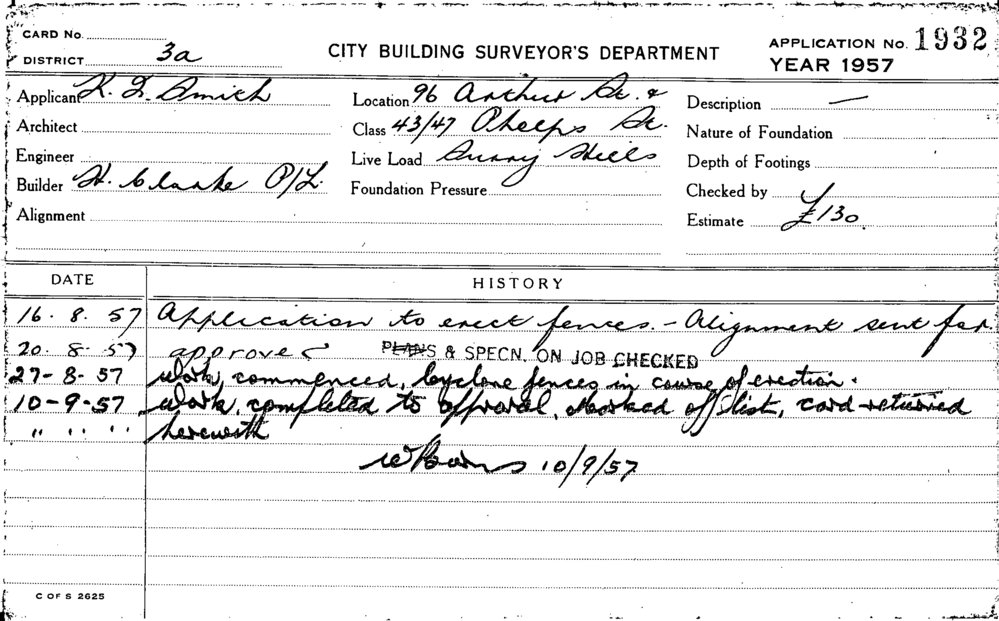 CARD No.
DISTRICT 3a
CITY BUILDING SURVEYOR'S DEPARTMENT
APPLICATION No. 1932
YEAR 1957
Applicant K. L. Smith
Architect
Engineer
Builder H. Clarke P/L.
Alignment
Location 96 Arthur St. &
Class 43/47 Phelps St.
Live Load Surry Hills
Foundation Pressure
Description —
Nature of Foundation
Depth of Footings
Checked by
Estimate £130.
DATE HISTORY
16. 8. 57 Application to erect fences. - Alignment sent for.
20. 8. 57 approved PLANS & SPECN. ON JOB CHECKED
27-8-57 Work, commenced, cyclone fences in course of erection.
10-9-57 Work, completed to approval, Marked off list, card returned
" " " herewith
10/9/57
C OF S 2625